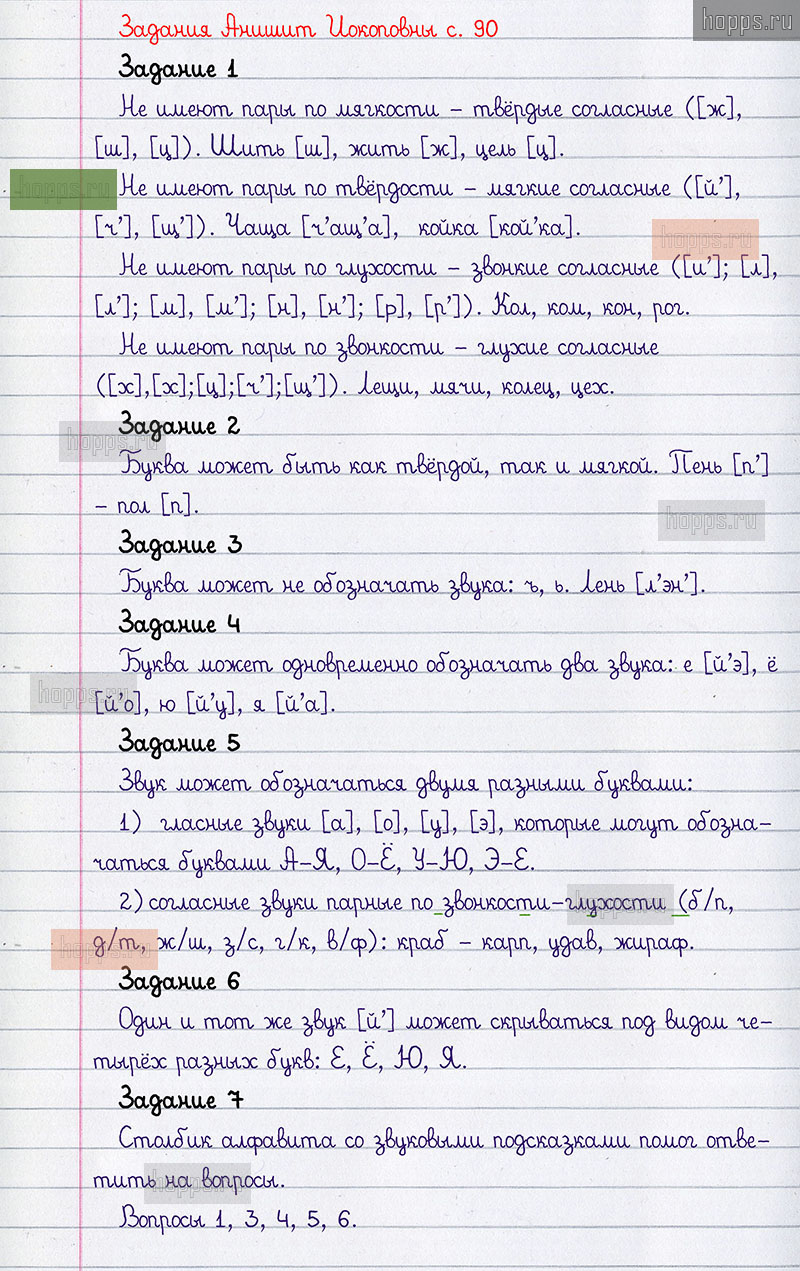 Задания Анишит Йокоповны с. 90
hopps.ru
Задание 1
Не имеют пары по мягкости – твёрдые согласные ([ж],
[ш], [ц]). Шить [ш], жить [ж], цель [ц].
hopps.ru
Не имеют пары по твёрдости – мягкие согласные ([й’],
[ч’], [щ’]). Чаща [ч’ащ’а], койка [кой’ка].
hopps.ru
Не имеют пары по глухости – звонкие согласные ([и’]; [л],
[л’]; [м], [м’]; [н], [н’]; [р], [р’]). Кол, ком, кон, рог.
Не имеют пары по звонкости – глухие согласные
([х],[х];[ц];[ч’];[щ’]). Лещи, мячи, колец, цех.
Задание 2
hopps.ru
Буква может быть как твёрдой, так и мягкой. Пень [п’]
– пол [п].
hopps.ru
Задание 3
Буква может не обозначать звука: ъ, ь. Лень [л’эн’].
Задание 4
Буква может одновременно обозначать два звука: е [й’э], ё
hopps.ru
[й’о], ю [й’у], я [й’а].
Задание 5
Звук может обозначаться двумя разными буквами:
1) гласные звуки [а], [о], [у], [э], которые могут обозна–
чаться буквами А–Я, О–Ё, У–Ю, Э–Е.
2) согласные звуки парные по звонкости–глухости (б/п,
hopps.ru
д/т, ж/ш, з/с, г/к, в/ф): краб – карп, удав, жираф.
hopps.ru
Задание 6
Один и тот же звук [й’] может скрываться под видом че–
тырёх разных букв: Е, Ё, Ю, Я.
Задание 7
Столбик алфавита со звуковыми подсказками помог отве–
тить на вопросы.
hopps.ru
Вопросы 1, 3, 4, 5, 6.